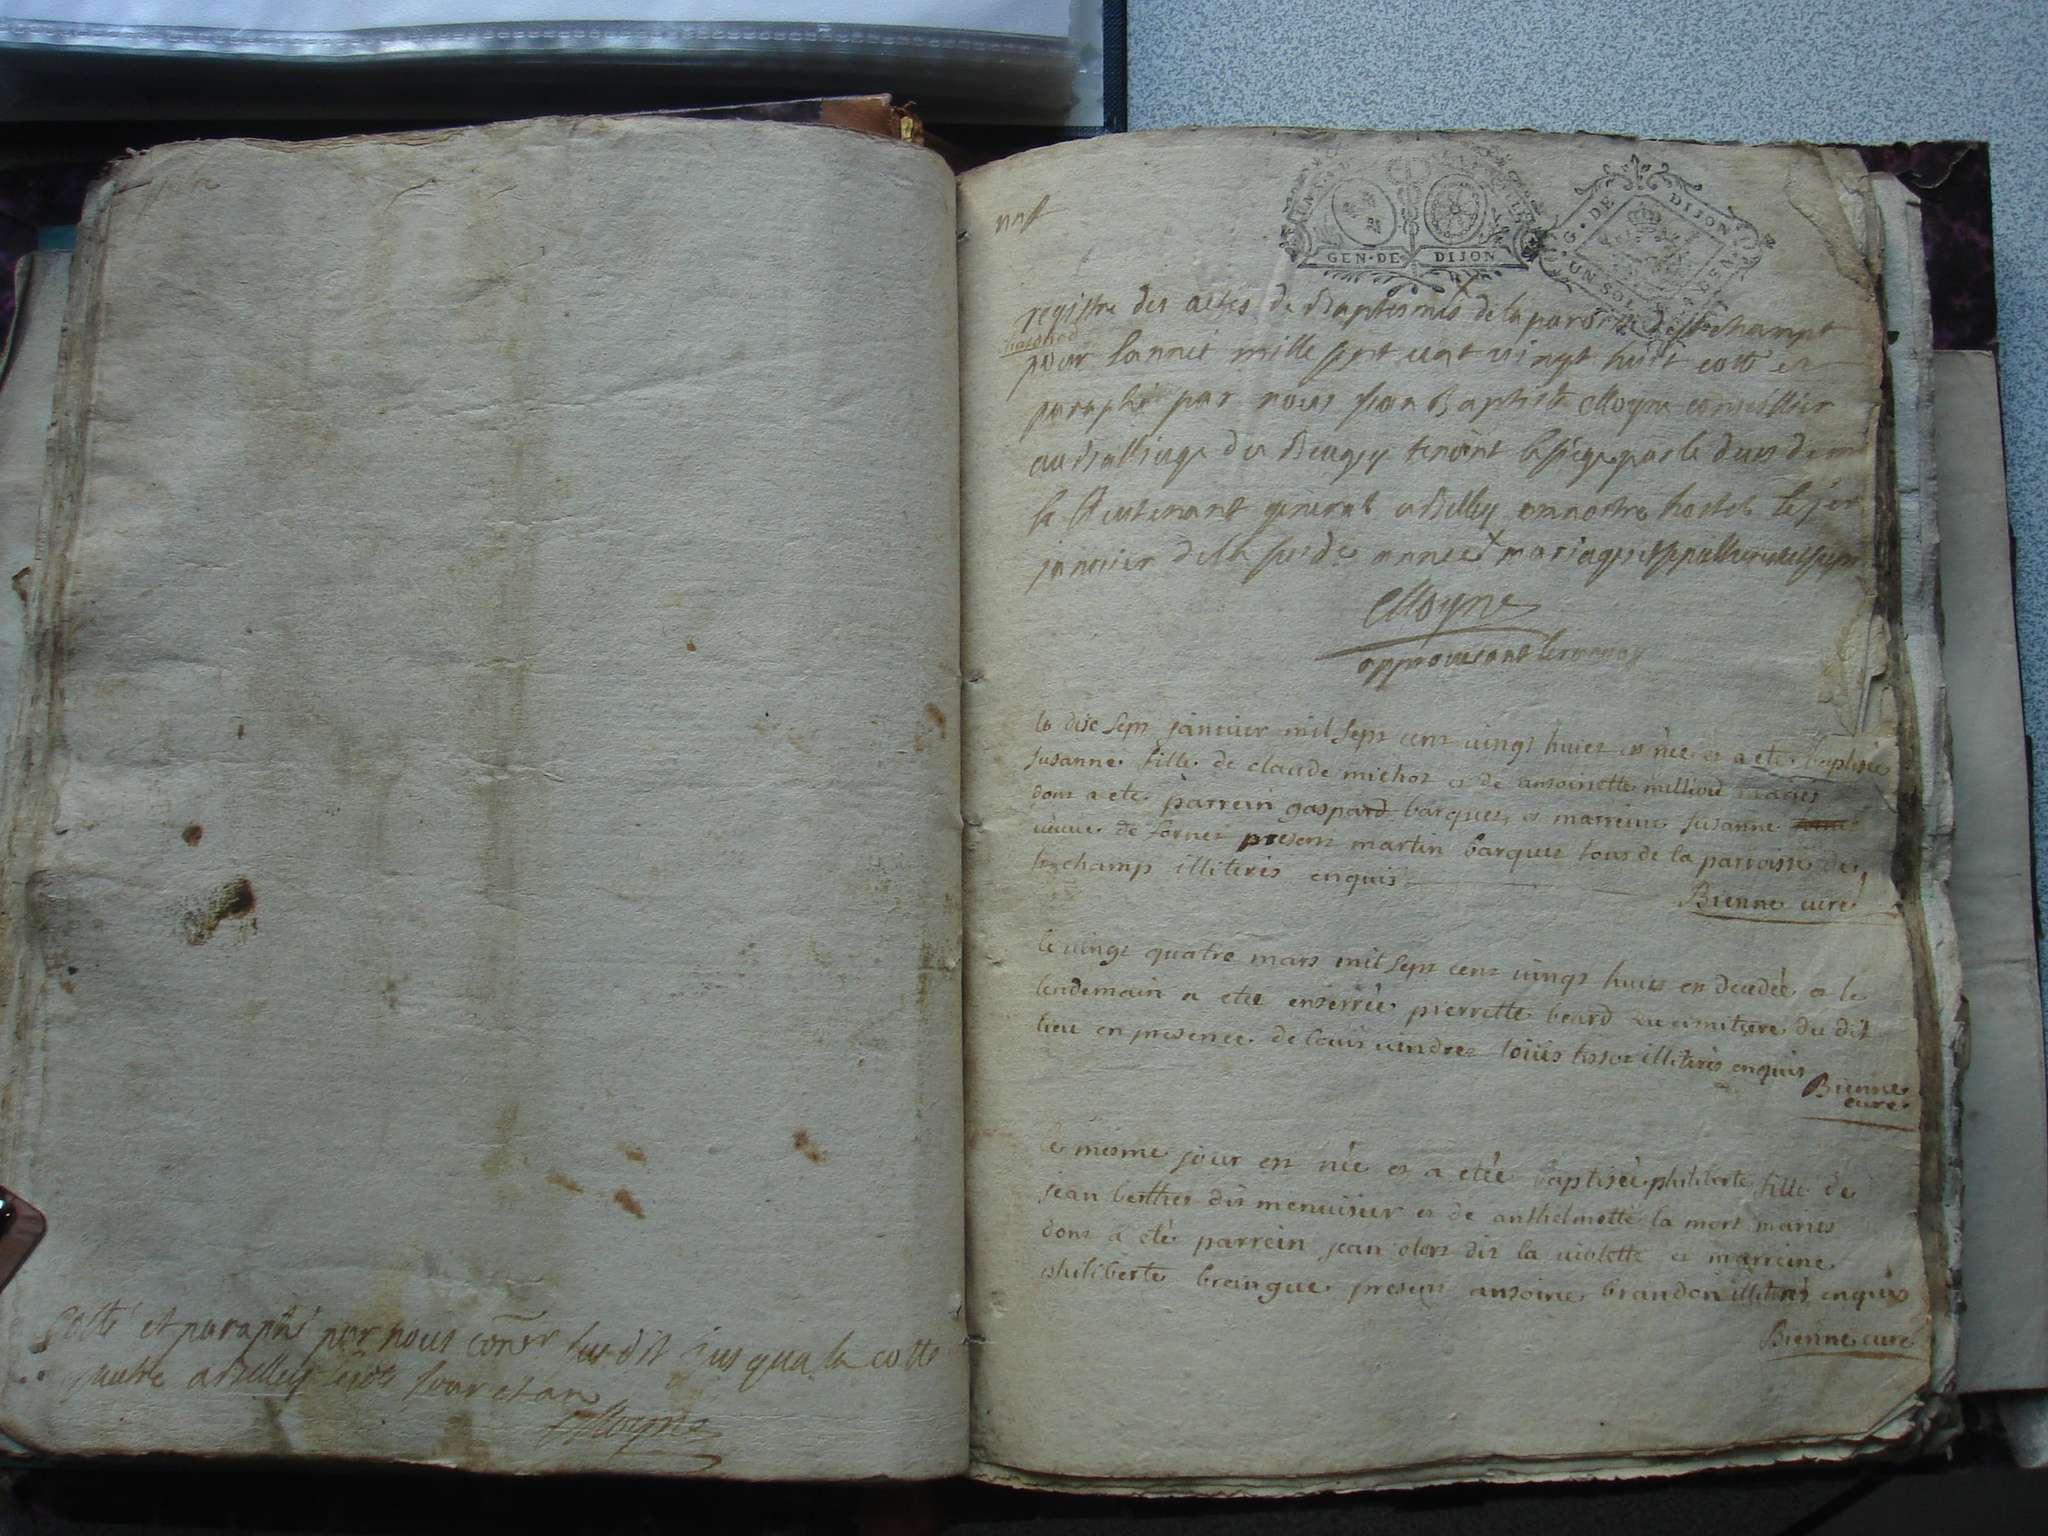 Cotté et paraphé par nous consr susdit jusqua la cotte
quatre a Belley lesdts jour et an
Moyne
GEN · DE DIJON
G · DE DIJON
UN SOL
registre des actes de Baptesmes de la paroisse de chamt
pour lannée mille sept cent vingt huit cotté et
paraphé par nous Jean Baptiste Moyne conseillier
au Balliage de Beugey tenant le siege par le duis de mr
le lieutenant general a Belley en nostre hostel le jer
janvier de la susde année mariages et sepultures
Moyne
approuvant le renvoy
le dise sept janvier mil sept cent vingt huict est née et a eté baptisée
susanne fille de claude michot et de antoinette millioud mariés
dont a eté parrein gaspard barquet, et marreine susanne
veuve de fornet present martin barquet tous de la parroisse de
lochamp illiterés enquis
Bienne curé
le vingt quatre mars mil sept cent vingt huict est decedée et le
lendemain a eteé enterrée pierrette beard au cimitiere du dit
lieu en presence de louis vendret loüis tissot illiterés enquis
Bienne
curé
le mesme jour est née et a etée baptisée philiberte fille de
jean berthet dit menuisier et de anthelmette la mort mariés
dont a eté parrein jean clert dit la violette et marreine
philiberte breingue present antoine brandon illiterés enquis
Bienne curé